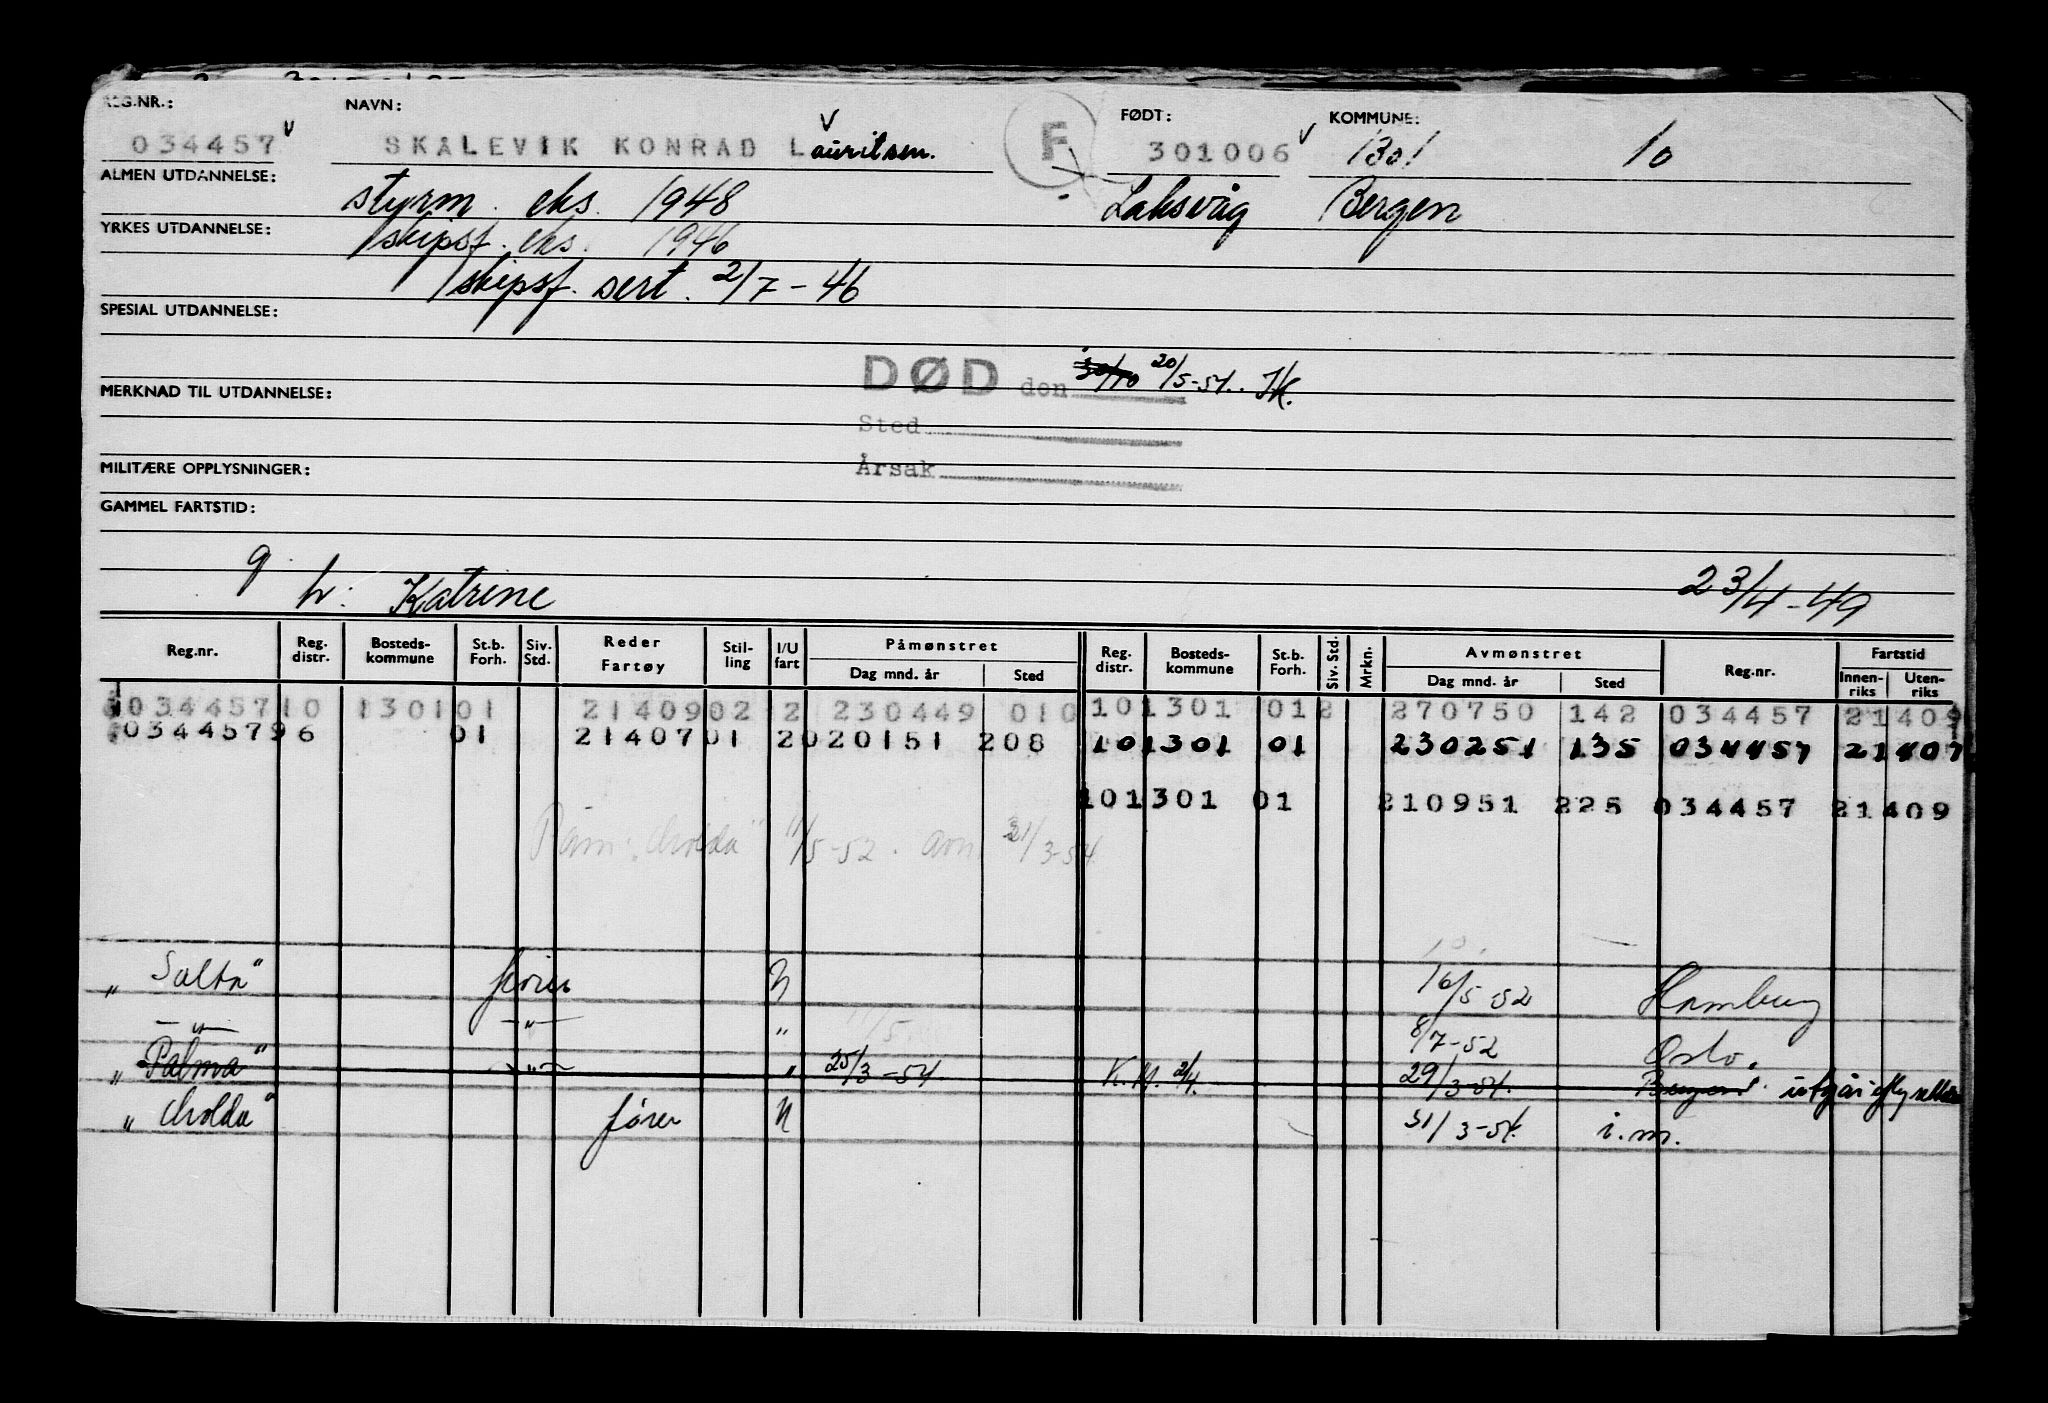 REG.NR.: NAVN: FØDT: KOMMUNE:
034457 v SKALEVIK KONRAD Lauritsen. F 301006 v 1301 10
ALMEN UTDANNELSE: styrm. eks. 1948 Laksvåg Bergen
YRKES UTDANNELSE: skipsf. eks. 1946
skipsf. sert. 2/7-46
SPESIAL UTDANNELSE:
DØD den 30/10 20/5-54.
MERKNAD TIL UTDANNELSE:
Sted
MILITÆRE OPPLYSNINGER: Årsak
GAMMEL FARTSTID:
g. h: Katrine 23/4-49
Reg.nr. Reg. distr. Bosteds-kommune St.b. Forh. Siv. Std. Reder Fartøy Stil-ling I/U fart Påmønstret Dag mnd. år Sted Reg. distr. Bosteds-kommune St.b. Forh. Siv. Std. Mrkn. Avmønstret Dag mnd. år Sted Reg.nr. Fartstid Innen-riks Uten-riks
03445710 130101 2140902 2 230449 010 101301 012 270750 142 034457 21409
03445796 01 2140701 2020151 208 101301 01 230251 135 034457 21407
101301 01 210951 225 034457 21409
Påm. "Molda" 11/5-52. avm. 31/3-54
"Salta" fører U 16/5 52 Hamburg
-"- -"- " 8/7-52 Oslo.
"Palma" -"- " 25/3-54 K.M. 2/4. 29/3-54. Bergen
"Molda" fører U 31/3-54. i.m.